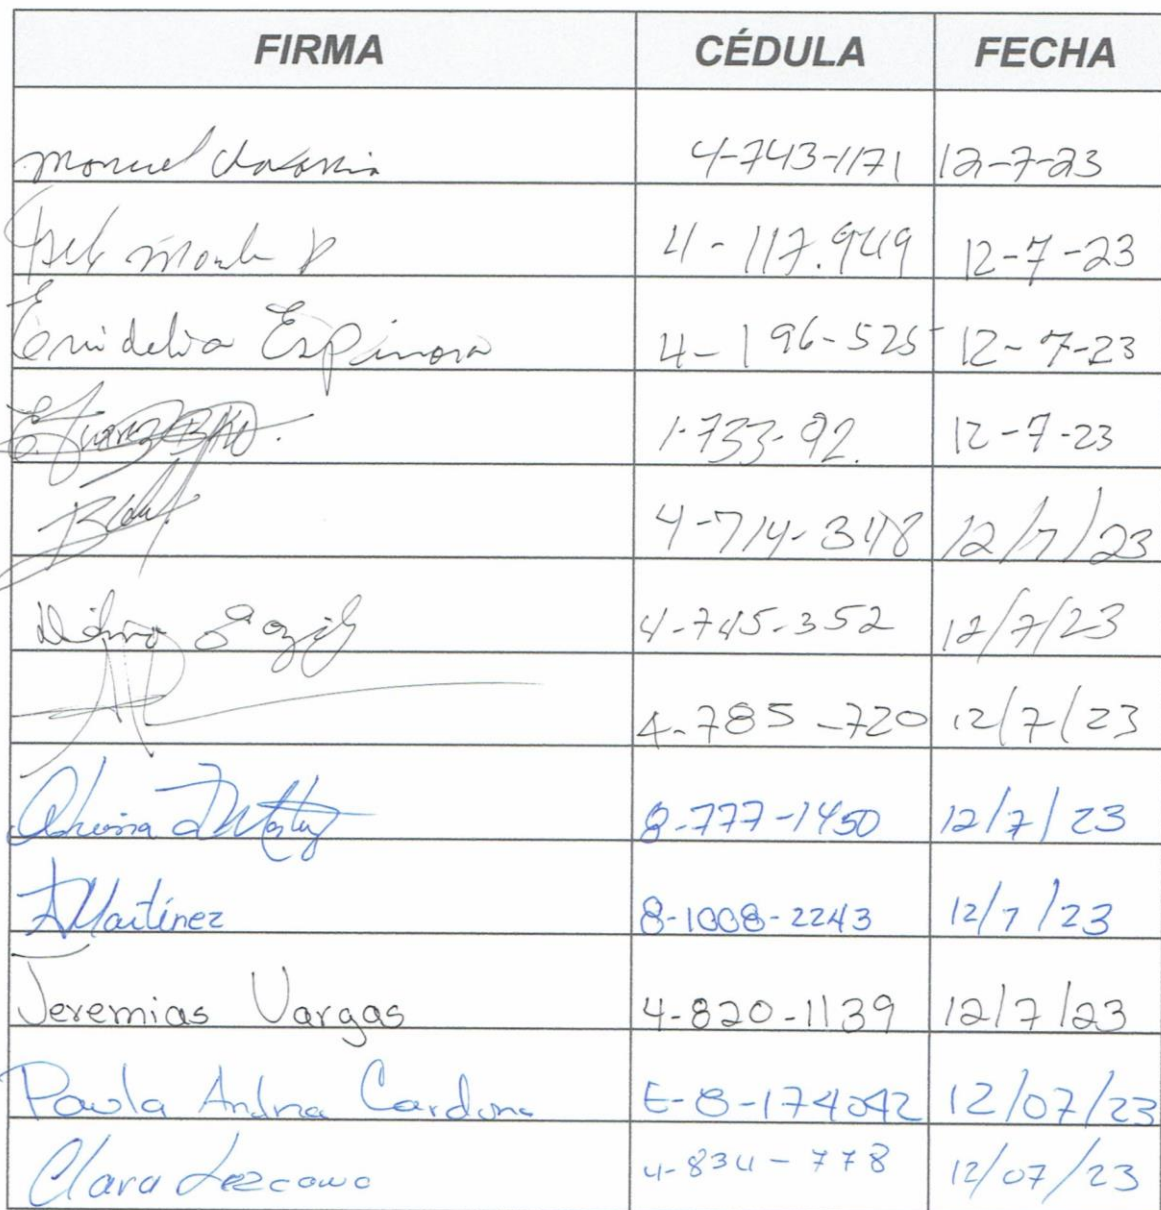 FIRMA CÉDULA FECHA
Manuel 4-743-1171 12-7-23
4-117.949 12-7-23
Enidelia Espinosa 4-196-525 12-7-23
1-733-92. 12-7-23
4-714-348 12/7/23
4-745-352 12/7/23
4-785-720 12/7/23
8-777-1450 12/7/23
AMartínez 8-1008-2243 12/7/23
Jeremias Vargas 4-820-1139 12/7/23
Paula Andrea Cardona E-8-174042 12/07/23
Clara Lezcano 4-834-778 12/07/23